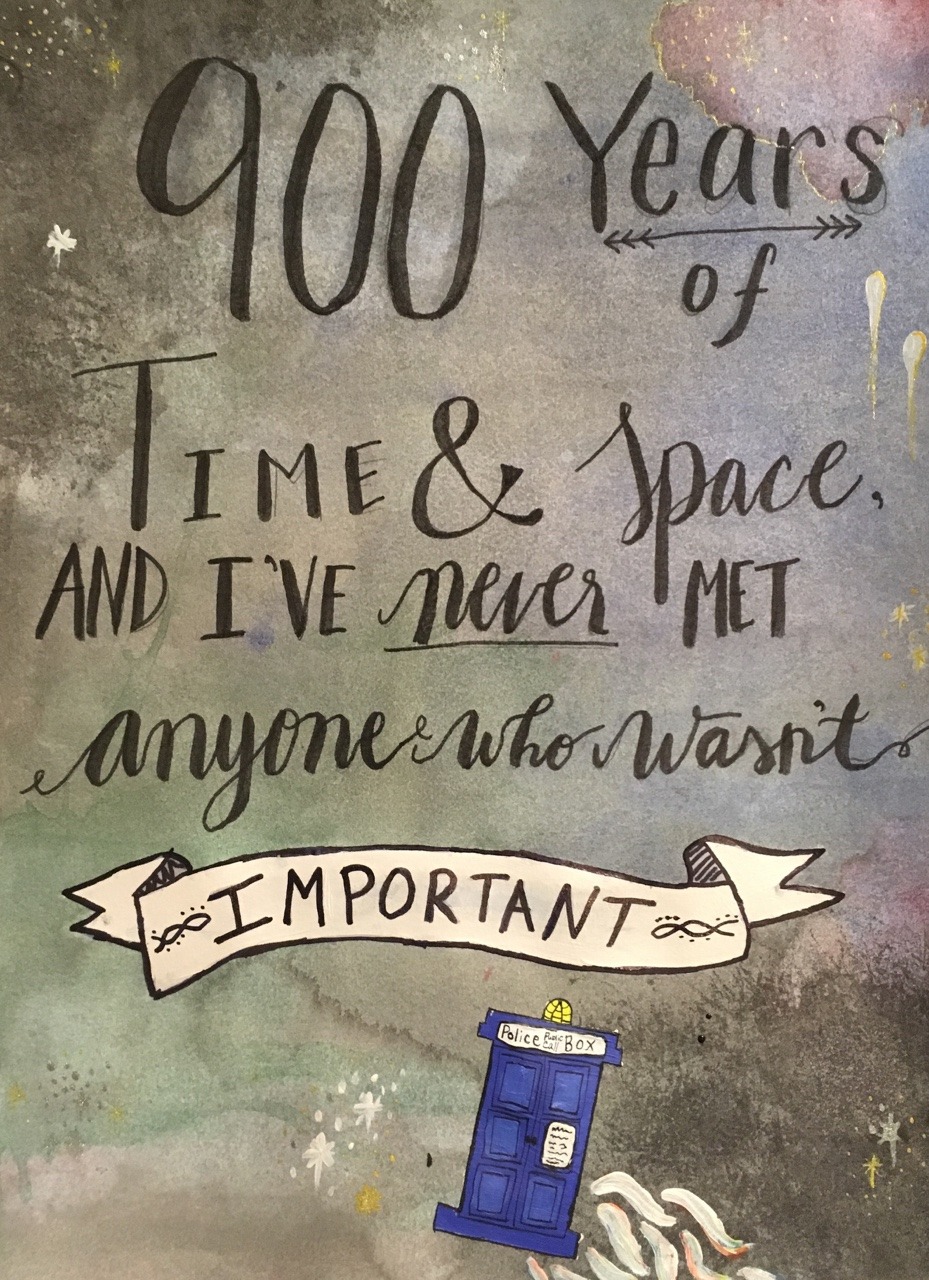 900 Years
of
TIME & Space,
AND I'VE never MET
anyone who wasn't
IMPORTANT
Police Public Call Box